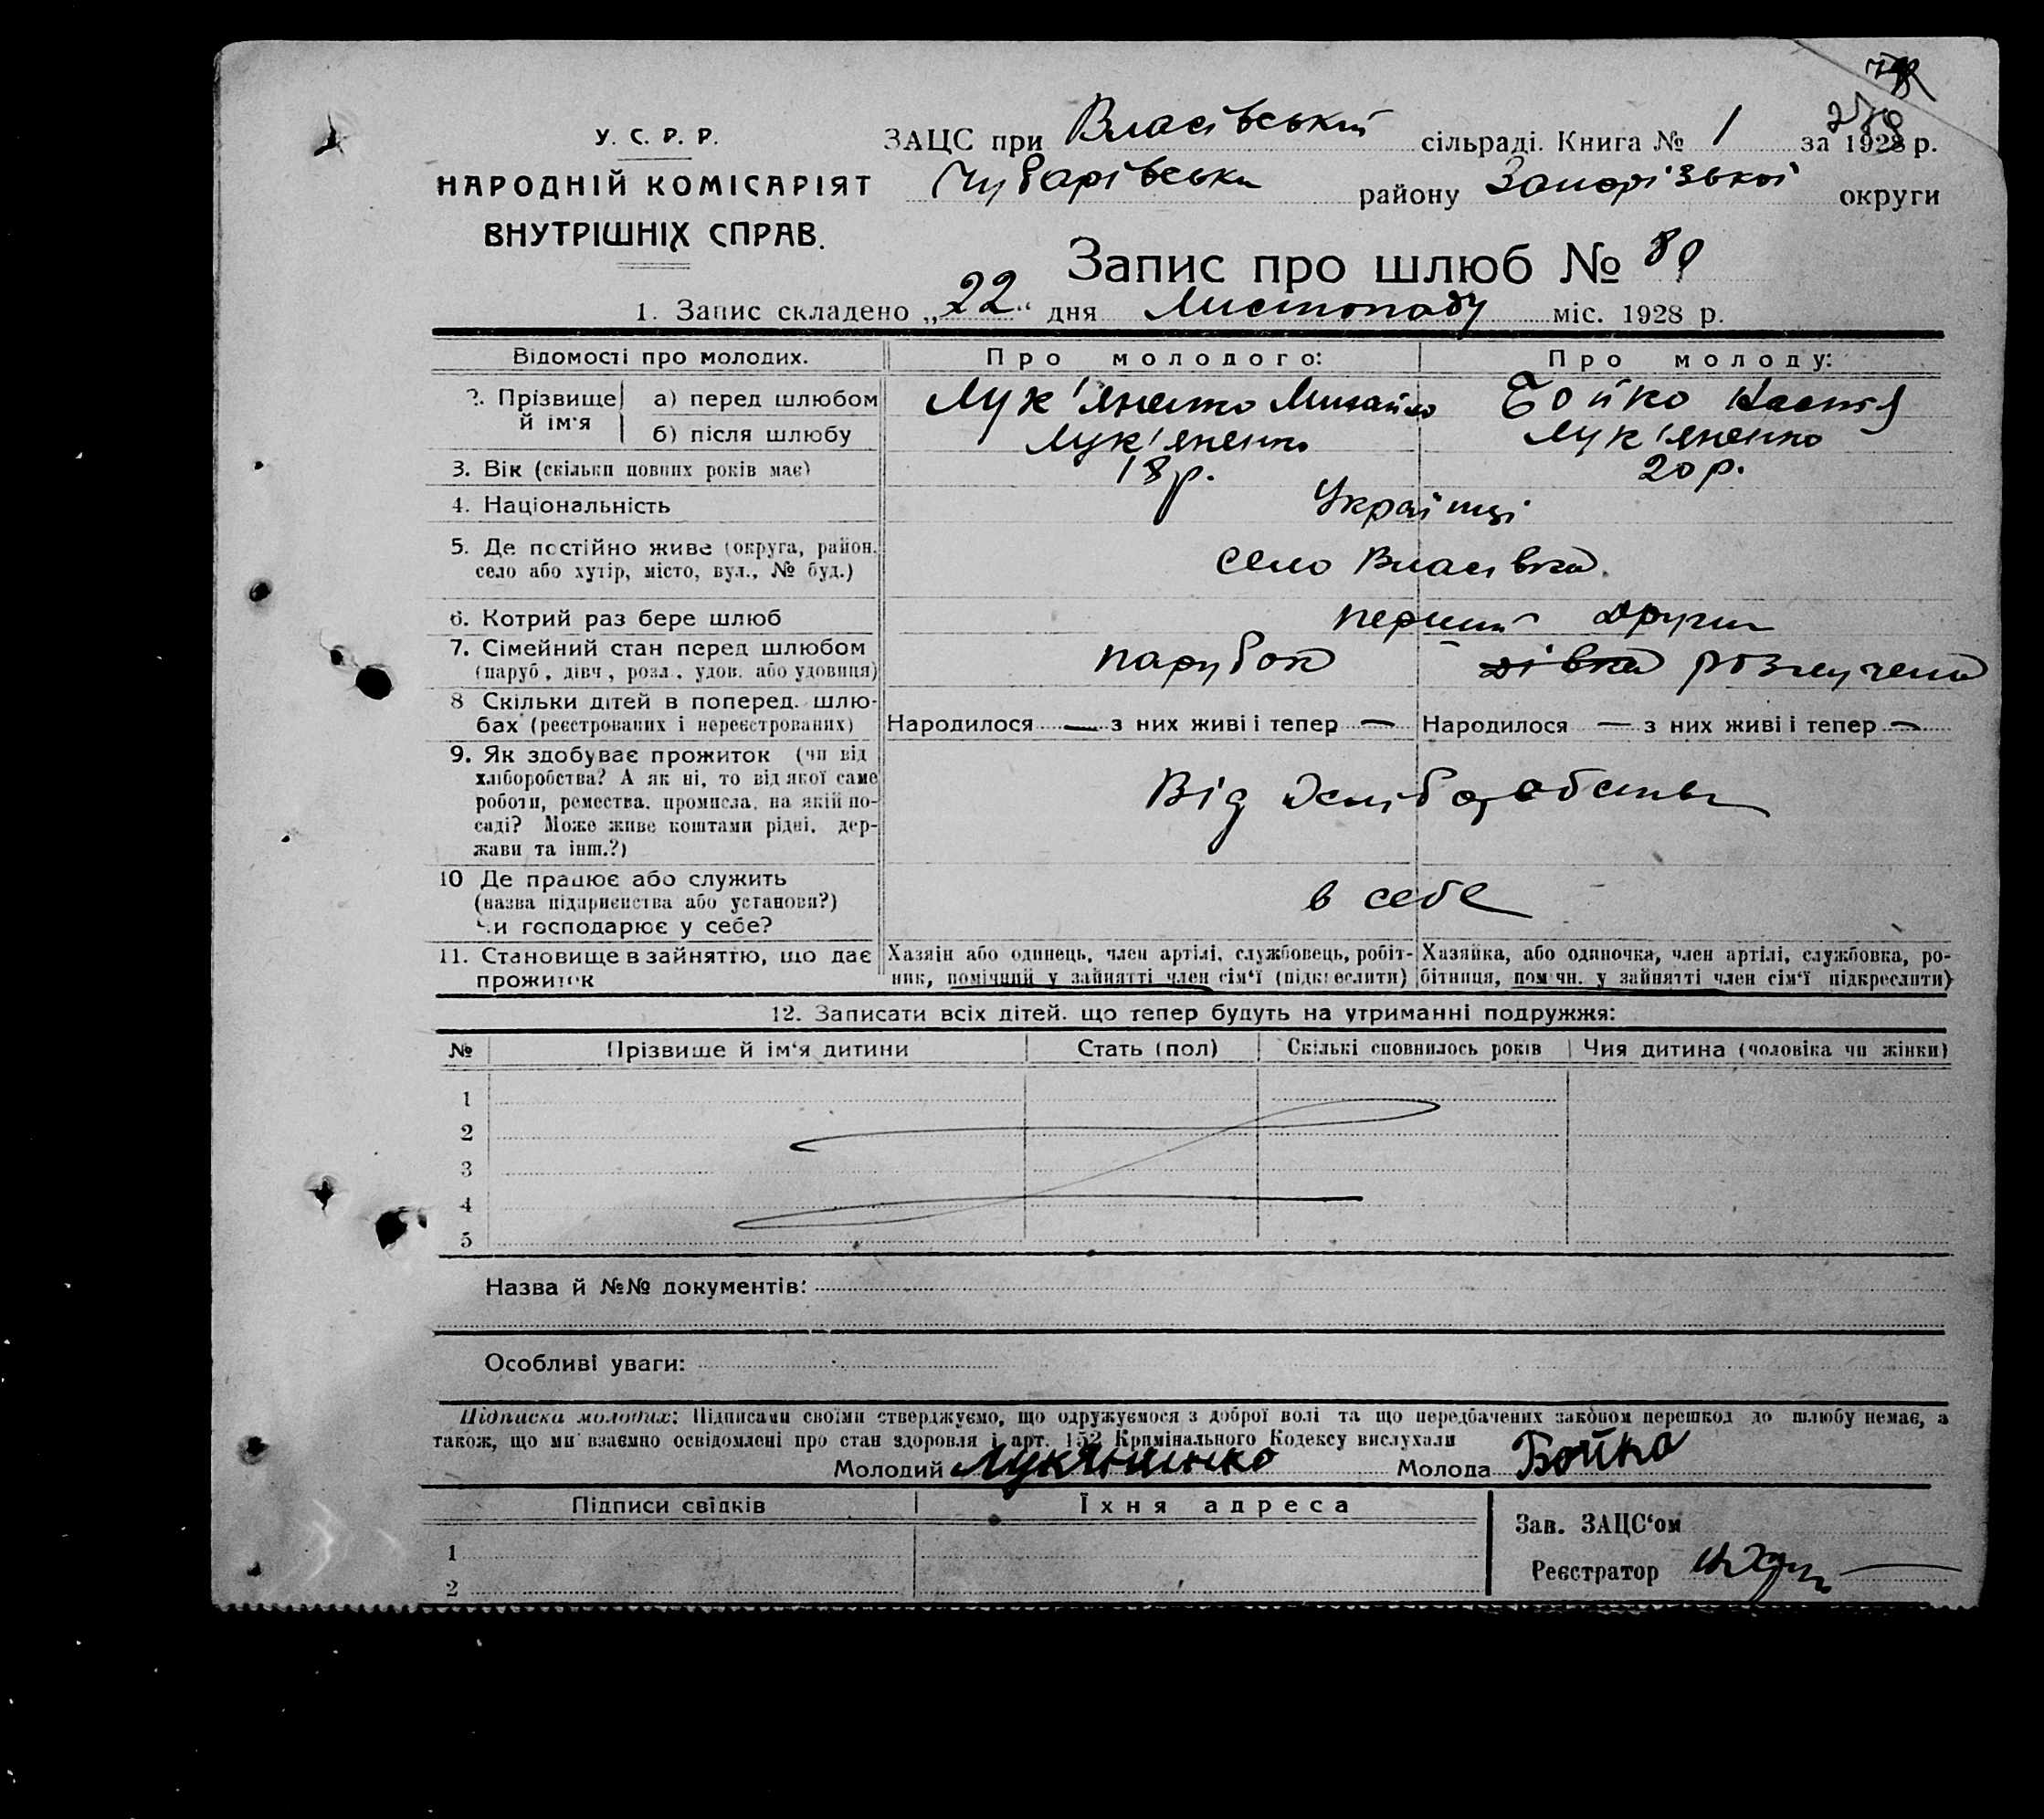 У. С. Р. Р.
НАРОДНІЙ КОМІСАРІЯТ
ВНУТРІШНІХ СПРАВ.
ЗАЦС при Власівській сільраді. Книга № 1 за 1928 р.
Чубарівськ району Запорізької округи
Запис про шлюб № 89
1. Запис складено „22“ дня Листопаду міс. 1928 р.
Відомості про молодих. Про молодого: Про молоду:
2. Прізвище й ім'я а) перед шлюбом Лук'яненко Михайло Бойко Настя
б) після шлюбу Лук'яненко Лук'яненко
3. Вік (скільки повних років має) 18 р. 20 р.
4. Національність Українці
5. Де постійно живе (округа, район, село або хутір, місто, вул., № буд.) село Власівка.
6. Котрий раз бере шлюб перший другий
7. Сімейний стан перед шлюбом (паруб., дівч., розл., удов. або удовиця) парубок дівка розлучена
8 Скільки дітей в поперед. шлюбах (реєстрованих і нереєстрованих) Народилося — з них живі і тепер — Народилося — з них живі і тепер —
9. Як здобуває прожиток (чи від
хліборобства? А як ні, то від якої саме
роботи, ремества, промисла, на якій по-
саді? Може живе коштами рідні, дер-
жави та інш.?)
Від хліборобства
10 Де працює або служить
(назва підприємства або установи?)
Чи господарює у себе?
в себе
11. Становище в зайняттю, що дає
прожиток
Хазяін або одинець, член артілі, службовець, робіт-
ник, помічний у зайнятті член сім'ї (підкреслити)
Хазяйка, або одиночка, член артілі, службовка, ро-
бітниця, помічн. у зайнятті член сім'ї підкреслити)
12. Записати всіх дітей, що тепер будуть на утриманні подружжя:
№ Прізвише й ім'я дитини Стать (пол) Скількі сповнилось років Чия дитина (чоловіка чи жінки)
1
2
3
4
5
Назва й №№ документів:
Особливі уваги:
Підписка молодих: Підписами своїми стверджуємо, що одружуємося з доброї волі та що передбачених законом перешкод до шлюбу немає, а
також, що ми взаємно освідомлені про стан здоровля і арт. 152 Кримінального Кодексу вислухали
Молодий Лукяненко Молода Бойко
Підписи свідків Їхня адреса
Зав. ЗАЦС'ом
1
Реєстратор
2